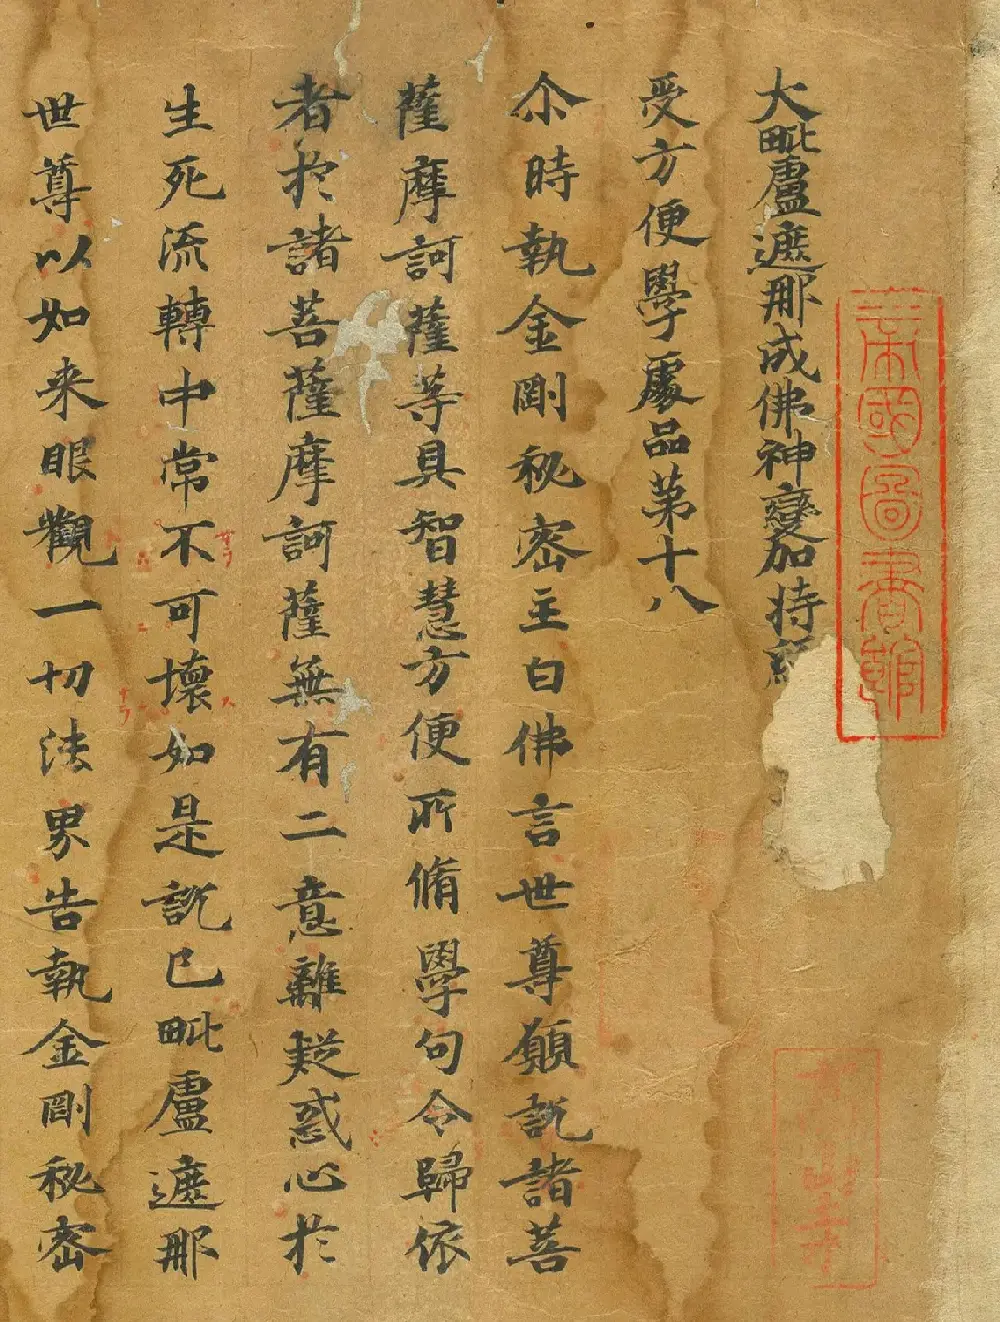 大毗盧遮那成佛神變加持經
受方便學處品第十八
尒時執金剛秘密主白佛言世尊願說諸菩
薩摩訶薩等具智慧方便所脩學句令歸依
者於諸菩薩摩訶薩無有二意離疑惑心於
生死流轉中常不可壞如是說已毗盧遮那
世尊以如来眼觀一切法界告執金剛秘密
帝國圖書館